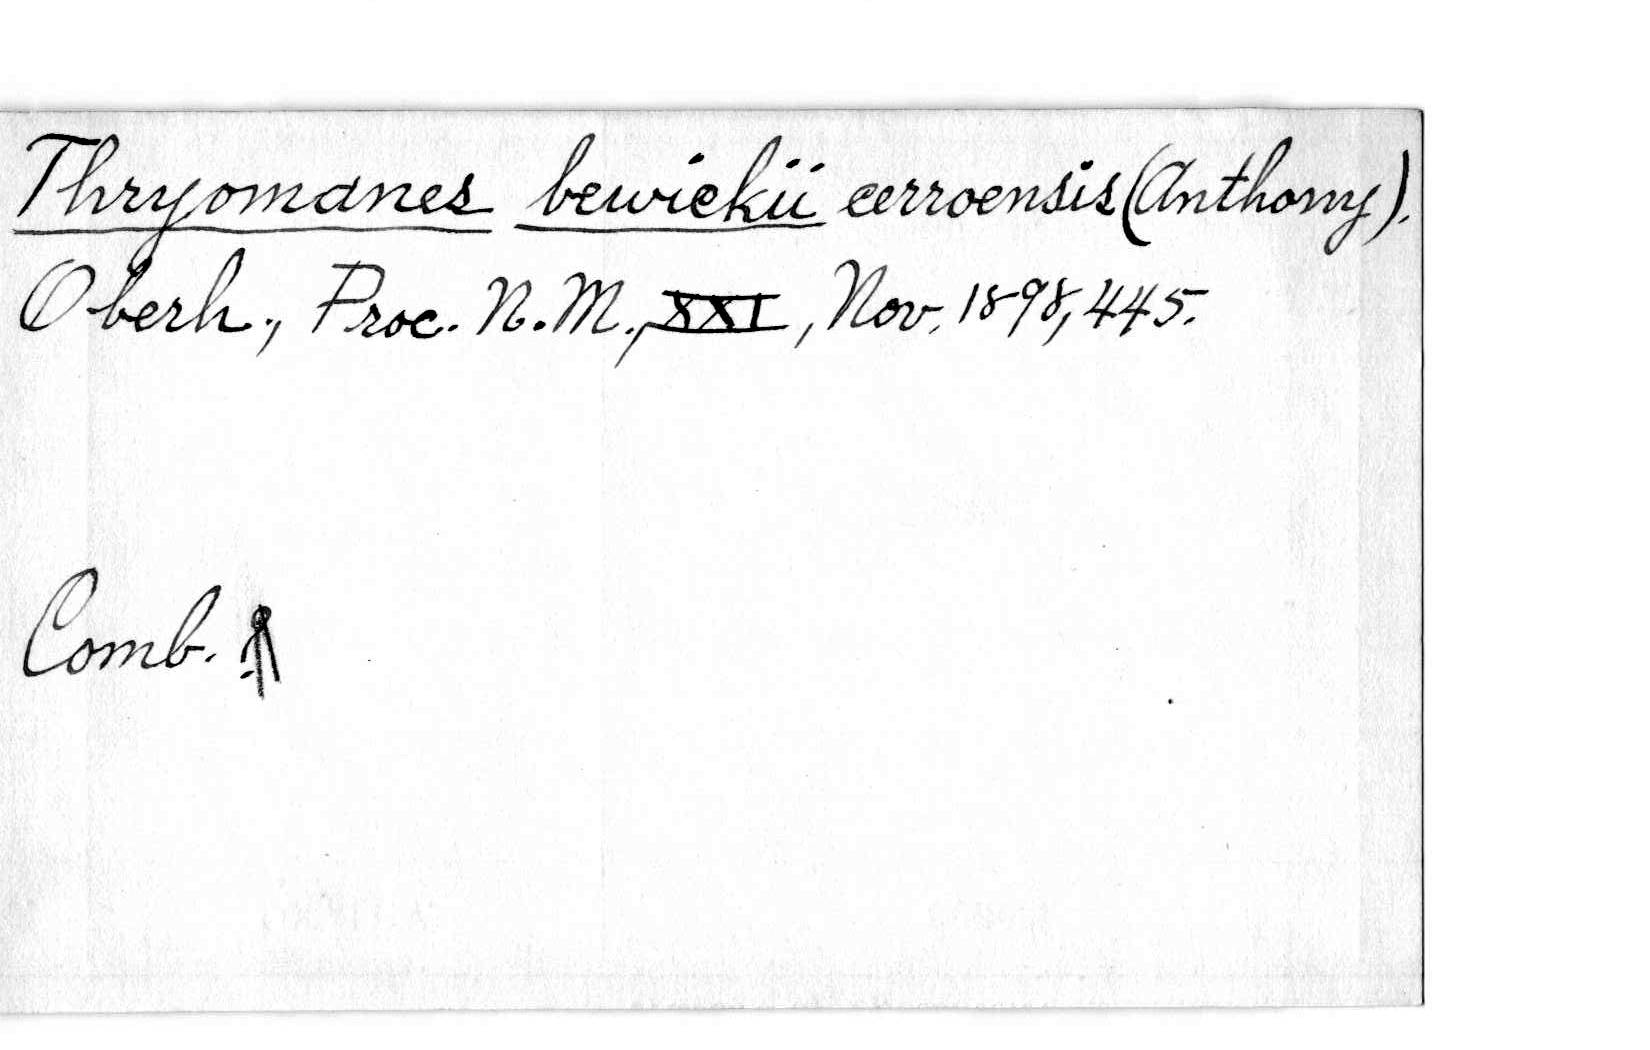 Thryomanes bewickii cerroensis (Anthony).
Oberh., Proc. N.M., XXI, Nov. 1898, 445.
Comb.